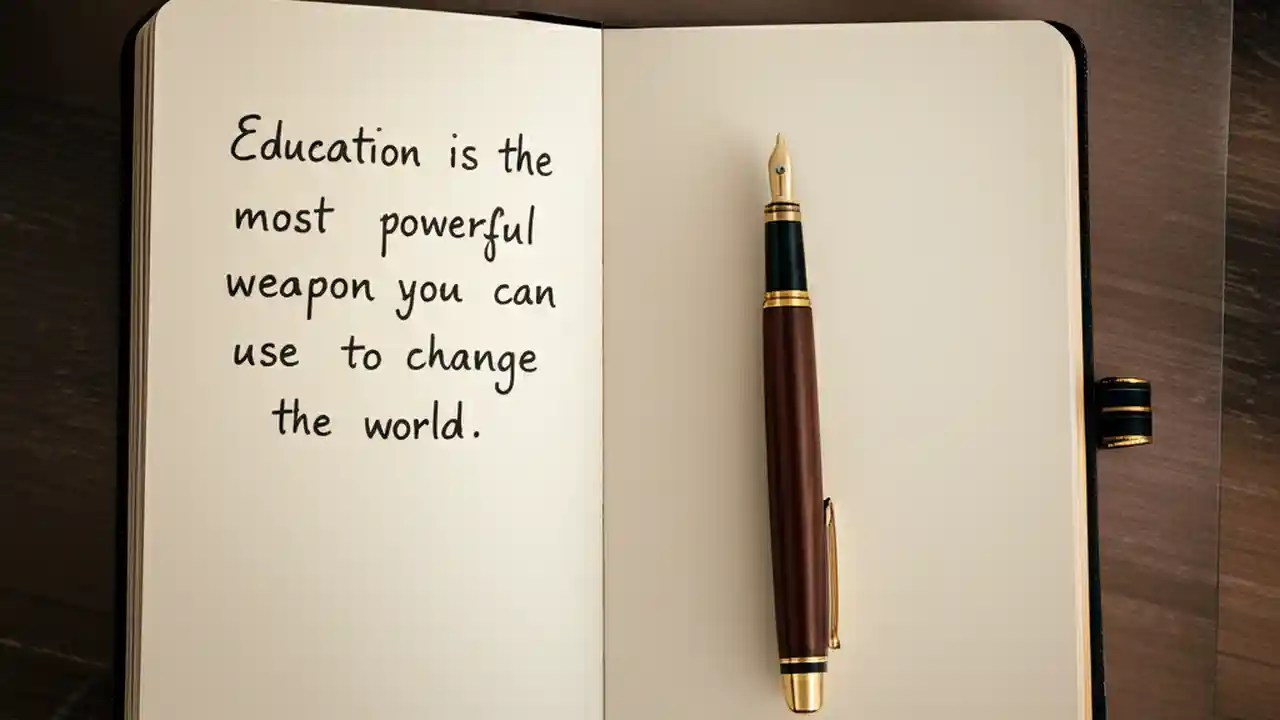 Education is the
most powerful
weapon you can
use to change
the world.